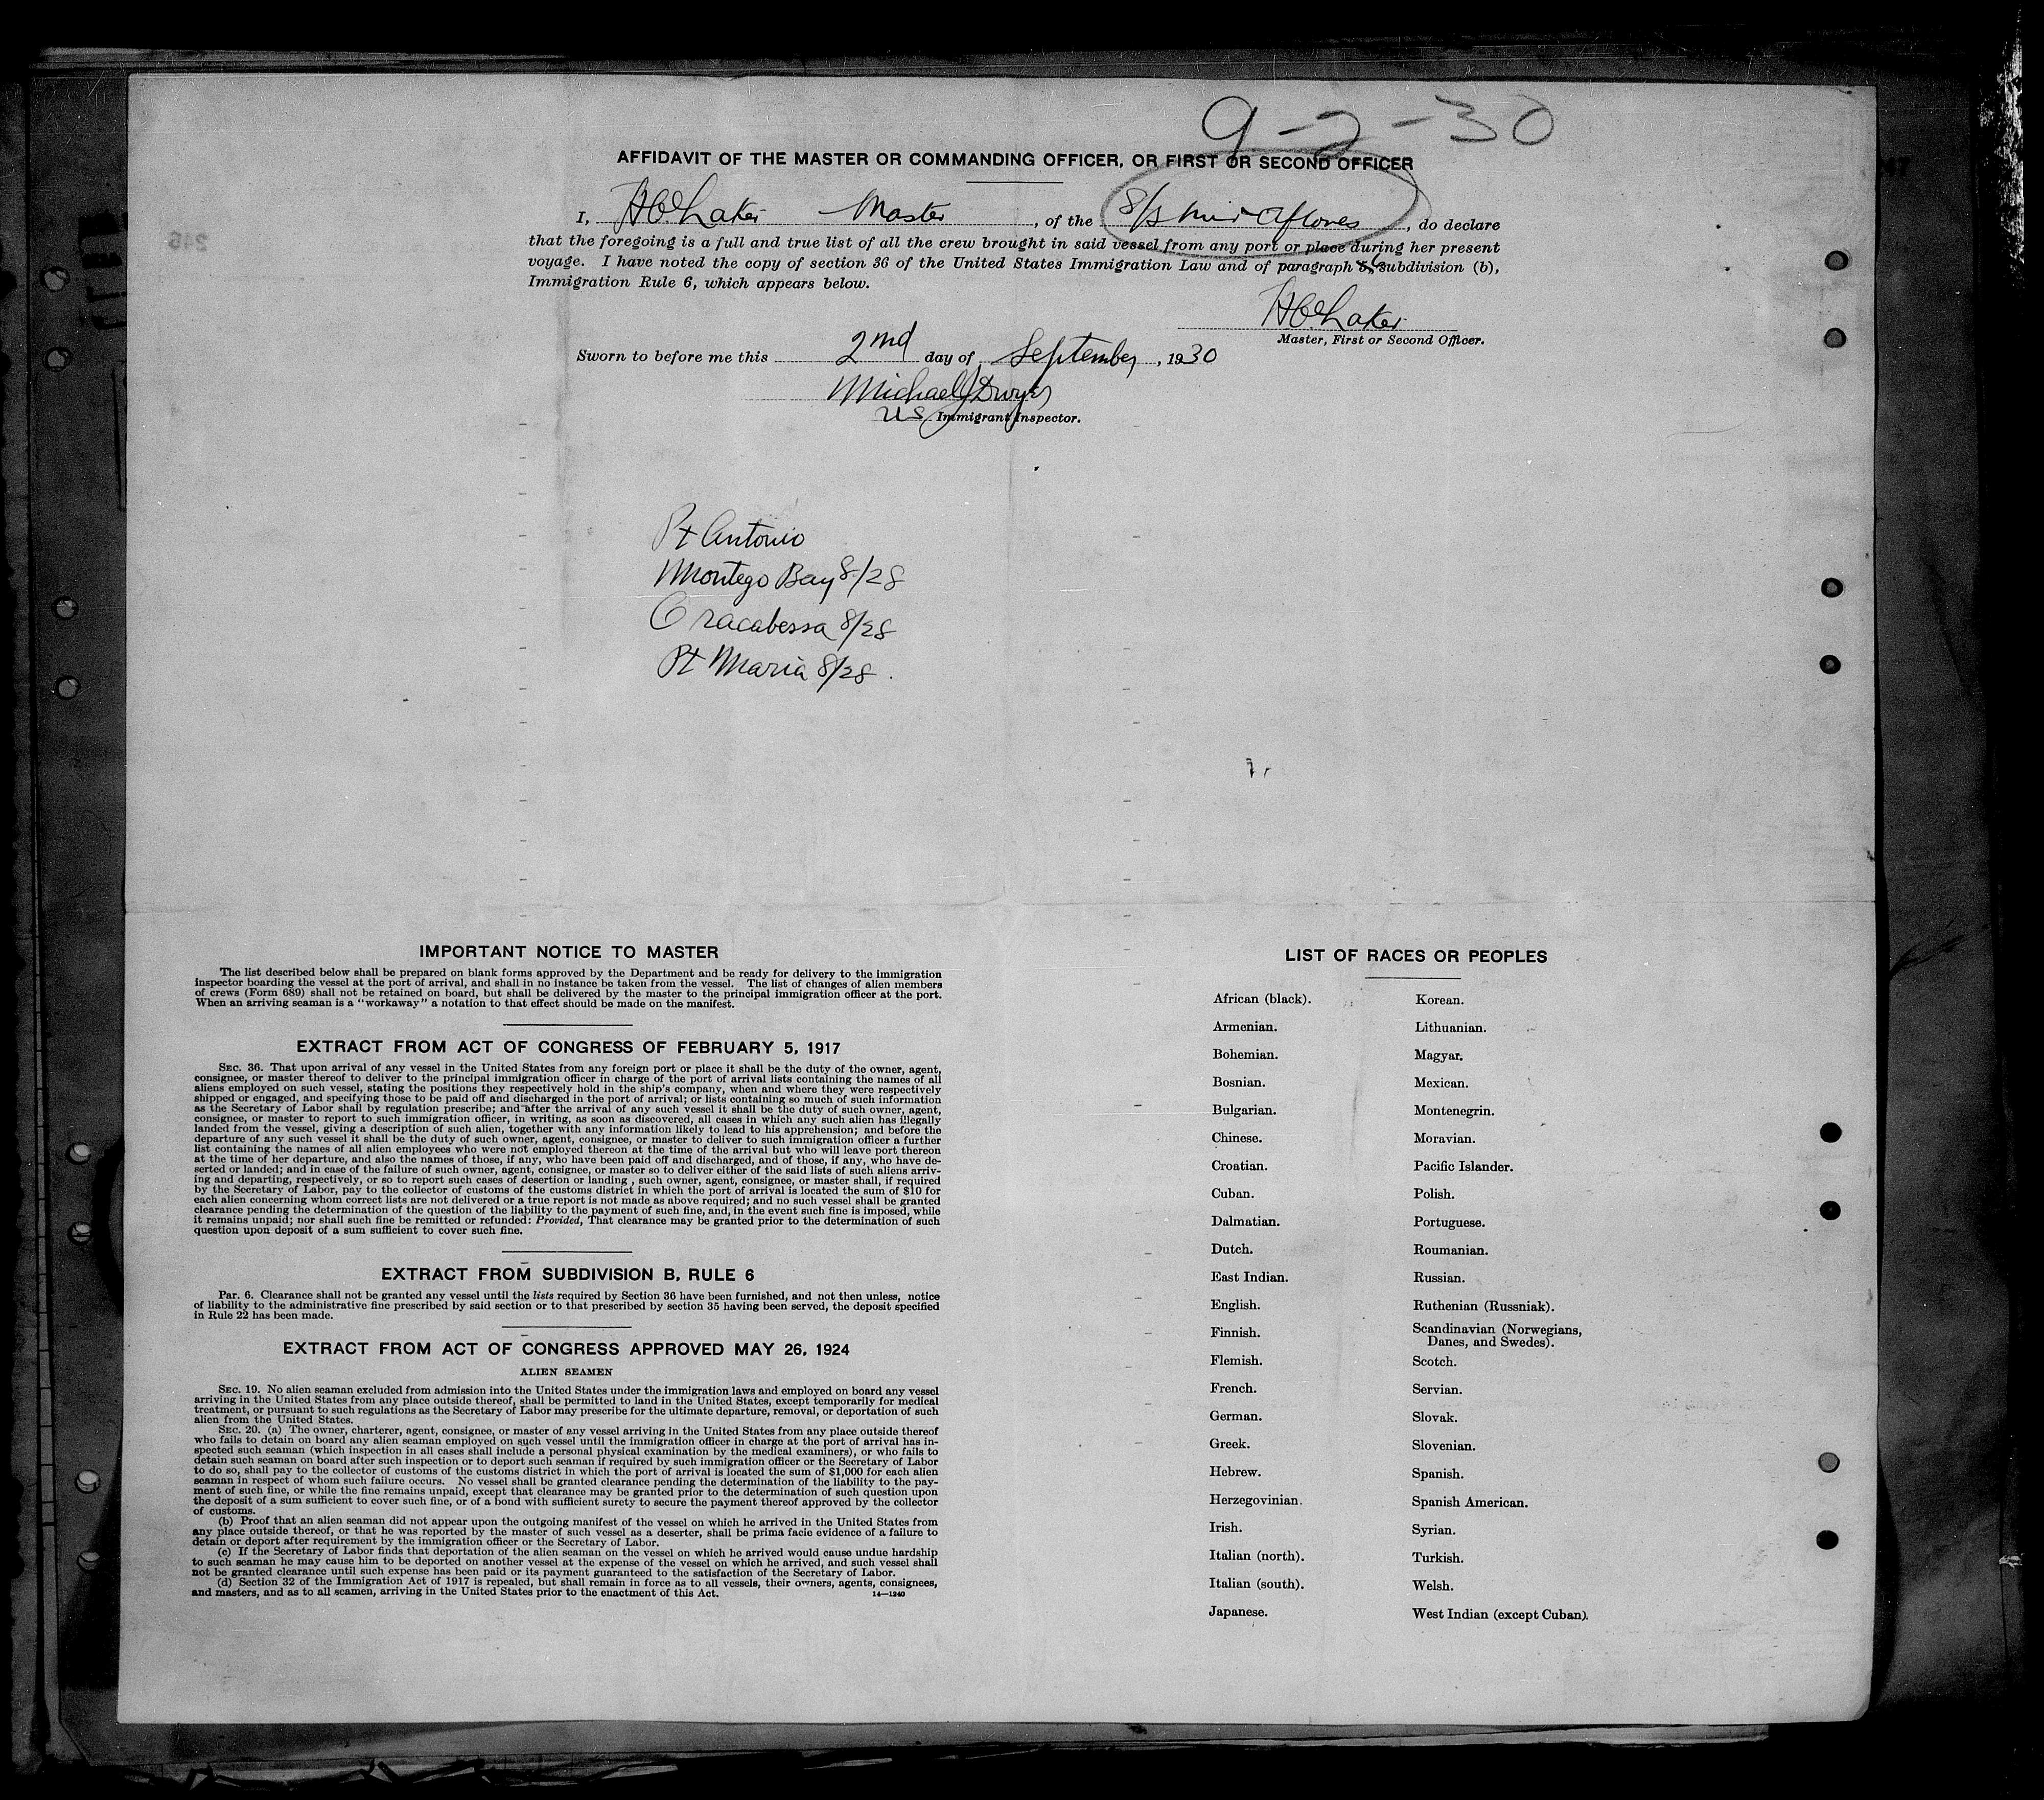 9-2-30
AFFIDAVIT OF THE MASTER OR COMMANDING OFFICER, OR FIRST OR SECOND OFFICER
I, Laker Master, of the S/S Miraflores, do declare
that the foregoing is a full and true list of all the crew brought in said vessel from any port or place during her present
voyage. I have noted the copy of section 36 of the United States Immigration Law and of paragraph 6 subdivision (b),
Immigration Rule 6, which appears below.
Laker
Master, First or Second Officer.
Sworn to before me this 2nd day of September, 1930
Michael J Dwyer
US Immigrant Inspector.
Pt Antonio
Montego Bay 8/28
Oracabessa 8/28
Pt Maria 8/28.
IMPORTANT NOTICE TO MASTER
The list described below shall be prepared on blank forms approved by the Department and be ready for delivery to the immigration
inspector boarding the vessel at the port of arrival, and shall in no instance be taken from the vessel. The list of changes of alien members
of crews (Form 689) shall not be retained on board, but shall be delivered by the master to the principal immigration officer at the port.
When an arriving seaman is a "workaway" a notation to that effect should be made on the manifest.
EXTRACT FROM ACT OF CONGRESS OF FEBRUARY 5, 1917
SEC. 36. That upon arrival of any vessel in the United States from any foreign port or place it shall be the duty of the owner, agent,
consignee, or master thereof to deliver to the principal immigration officer in charge of the port of arrival lists containing the names of all
aliens employed on such vessel, stating the positions they respectively hold in the ship's company, when and where they were respectively
shipped or engaged, and specifying those to be paid off and discharged in the port of arrival; or lists containing so much of such information
as the Secretary of Labor shall by regulation prescribe; and after the arrival of any such vessel it shall be the duty of such owner, agent,
consignee, or master to report to such immigration officer, in writing, as soon as discovered, all cases in which any such alien has illegally
landed from the vessel, giving a description of such alien, together with any information likely to lead to his apprehension; and before the
departure of any such vessel it shall be the duty of such owner, agent, consignee, or master to deliver to such immigration officer a further
list containing the names of all alien employees who were not employed thereon at the time of the arrival but who will leave port thereon
at the time of her departure, and also the names of those, if any, who have been paid off and discharged, and of those, if any, who have de-
serted or landed; and in case of the failure of such owner, agent, consignee, or master so to deliver either of the said lists of such aliens arriv-
ing and departing, respectively, or so to report such cases of desertion or landing , such owner, agent, consignee, or master shall, if required
by the Secretary of Labor, pay to the collector of customs of the customs district in which the port of arrival is located the sum of $10 for
each alien concerning whom correct lists are not delivered or a true report is not made as above required; and no such vessel shall be granted
clearance pending the determination of the question of the liability to the payment of such fine, and, in the event such fine is imposed, while
it remains unpaid; nor shall such fine be remitted or refunded: Provided, That clearance may be granted prior to the determination of such
question upon deposit of a sum sufficient to cover such fine.
EXTRACT FROM SUBDIVISION B, RULE 6
Par. 6. Clearance shall not be granted any vessel until the lists required by Section 36 have been furnished, and not then unless, notice
of liability to the administrative fine prescribed by said section or to that prescribed by section 35 having been served, the deposit specified
in Rule 22 has been made.
EXTRACT FROM ACT OF CONGRESS APPROVED MAY 26, 1924
ALIEN SEAMEN
SEC. 19. No alien seaman excluded from admission into the United States under the immigration laws and employed on board any vessel
arriving in the United States from any place outside thereof, shall be permitted to land in the United States, except temporarily for medical
treatment, or pursuant to such regulations as the Secretary of Labor may prescribe for the ultimate departure, removal, or deportation of such
alien from the United States.
SEC. 20. (a) The owner, charterer, agent, consignee, or master of any vessel arriving in the United States from any place outside thereof
who fails to detain on board any alien seaman employed on such vessel until the immigration officer in charge at the port of arrival has in-
spected such seaman (which inspection in all cases shall include a personal physical examination by the medical examiners), or who fails to
detain such seaman on board after such inspection or to deport such seaman if required by such immigration officer or the Secretary of Labor
to do so, shall pay to the collector of customs of the customs district in which the port of arrival is located the sum of $1,000 for each alien
seaman in respect of whom such failure occurs. No vessel shall be granted clearance pending the determination of the liability to the pay-
ment of such fine, or while the fine remains unpaid, except that clearance may be granted prior to the determination of such question upon
the deposit of a sum sufficient to cover such fine, or of a bond with sufficient surety to secure the payment thereof approved by the collector
of customs.
(b) Proof that an alien seaman did not appear upon the outgoing manifest of the vessel on which he arrived in the United States from
any place outside thereof, or that he was reported by the master of such vessel as a deserter, shall be prima facie evidence of a failure to
detain or deport after requirement by the immigration officer or the Secretary of Labor.
(c) If the Secretary of Labor finds that deportation of the alien seaman on the vessel on which he arrived would cause undue hardship
to such seaman he may cause him to be deported on another vessel at the expense of the vessel on which he arrived, and such vessel shall
not be granted clearance until such expense has been paid or its payment guaranteed to the satisfaction of the Secretary of Labor.
(d) Section 32 of the Immigration Act of 1917 is repealed, but shall remain in force as to all vessels, their owners, agents, consignees,
and masters, and as to all seamen, arriving in the United States prior to the enactment of this Act.
14—1240
LIST OF RACES OR PEOPLES
African (black).
Armenian.
Bohemian.
Bosnian.
Bulgarian.
Chinese.
Croatian.
Cuban.
Dalmatian.
Dutch.
East Indian.
English.
Finnish.
Flemish.
French.
German.
Greek.
Hebrew.
Herzegovinian.
Irish.
Italian (north).
Italian (south).
Japanese.
Korean.
Lithuanian.
Magyar.
Mexican.
Montenegrin.
Moravian.
Pacific Islander.
Polish.
Portuguese.
Roumanian.
Russian.
Ruthenian (Russniak).
Scandinavian (Norwegians,
Danes, and Swedes).
Scotch.
Servian.
Slovak.
Slovenian.
Spanish.
Spanish American.
Syrian.
Turkish.
Welsh.
West Indian (except Cuban).